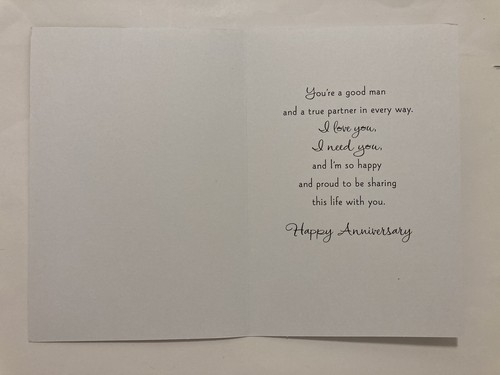 You're a good man
and a true partner in every way.
I love you,
I need you,
and I'm so happy
and proud to be sharing
this life with you.
Happy Anniversary